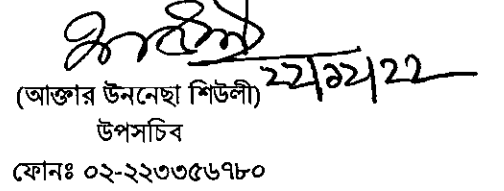 ২২/১২/২২
(আক্তার উননেছা শিউলী)
উপসচিব
ফোনঃ ০২-২২৩৩৫৬৭৮০